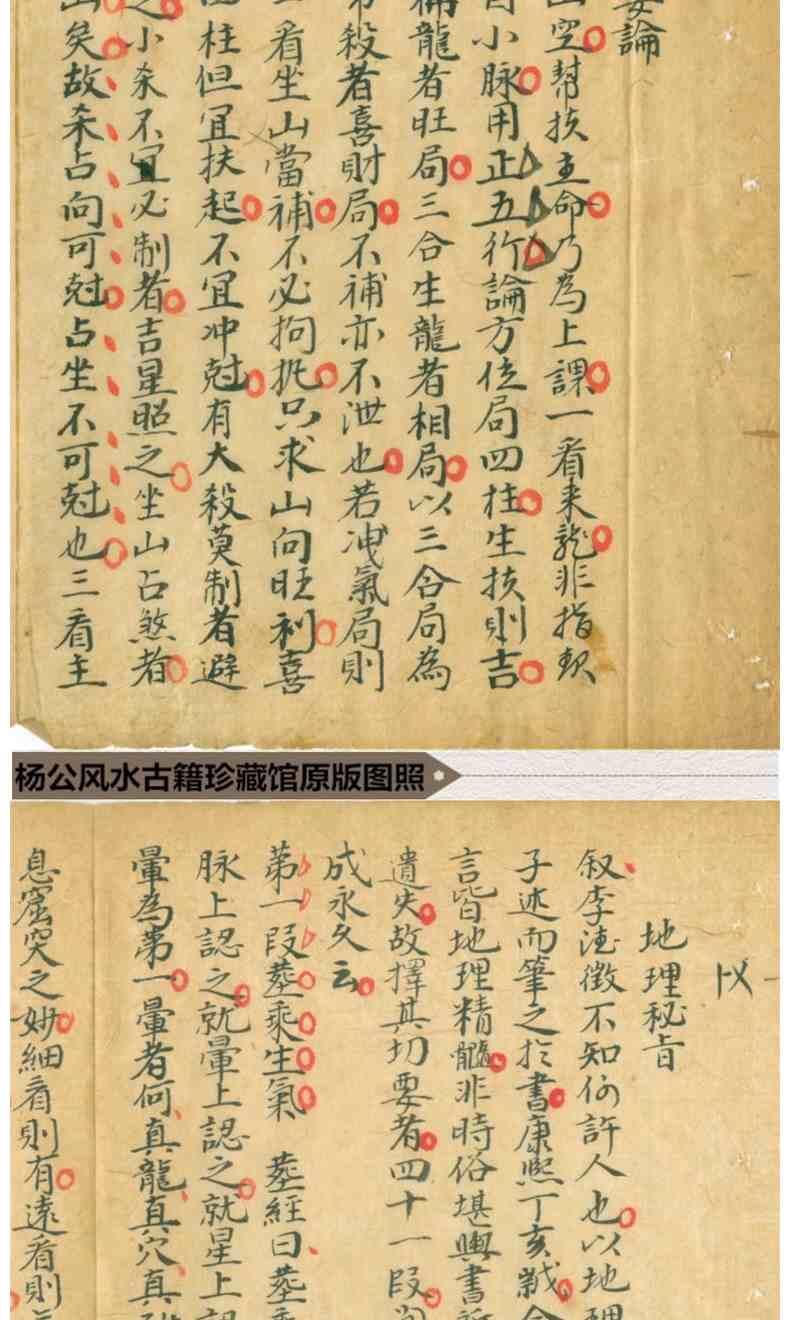 要論
山空幫扶主命乃為上課一看来龍非指軟
小脉用正五行論方位局四柱生扶則吉
龍者旺局三合生龍者相局以三合局為
殺者喜財局不補亦不泄也若洩氣局則
看坐山當補不必拘扼只求山向旺利喜
柱但宜扶起不宜冲尅有大殺莫制者避
之小杀不宜必制者吉星照之坐山占煞者
山矣故杀占向可尅占坐不可尅也三看主
杨公风水古籍珍藏馆原版图照
地理秘旨
叙李徳徵不知何許人也以地理
子述而筆之於書康熙丁亥
言皆地理精髓非時俗堪輿書
遺失故擇其切要者四十一段
成永久云
第一段塟乘生氣 塟經曰塟
脉上認之就暈上認之就星上認
暈為第一暈者何真龍真穴真
息窟突之妙細看則有遠看則